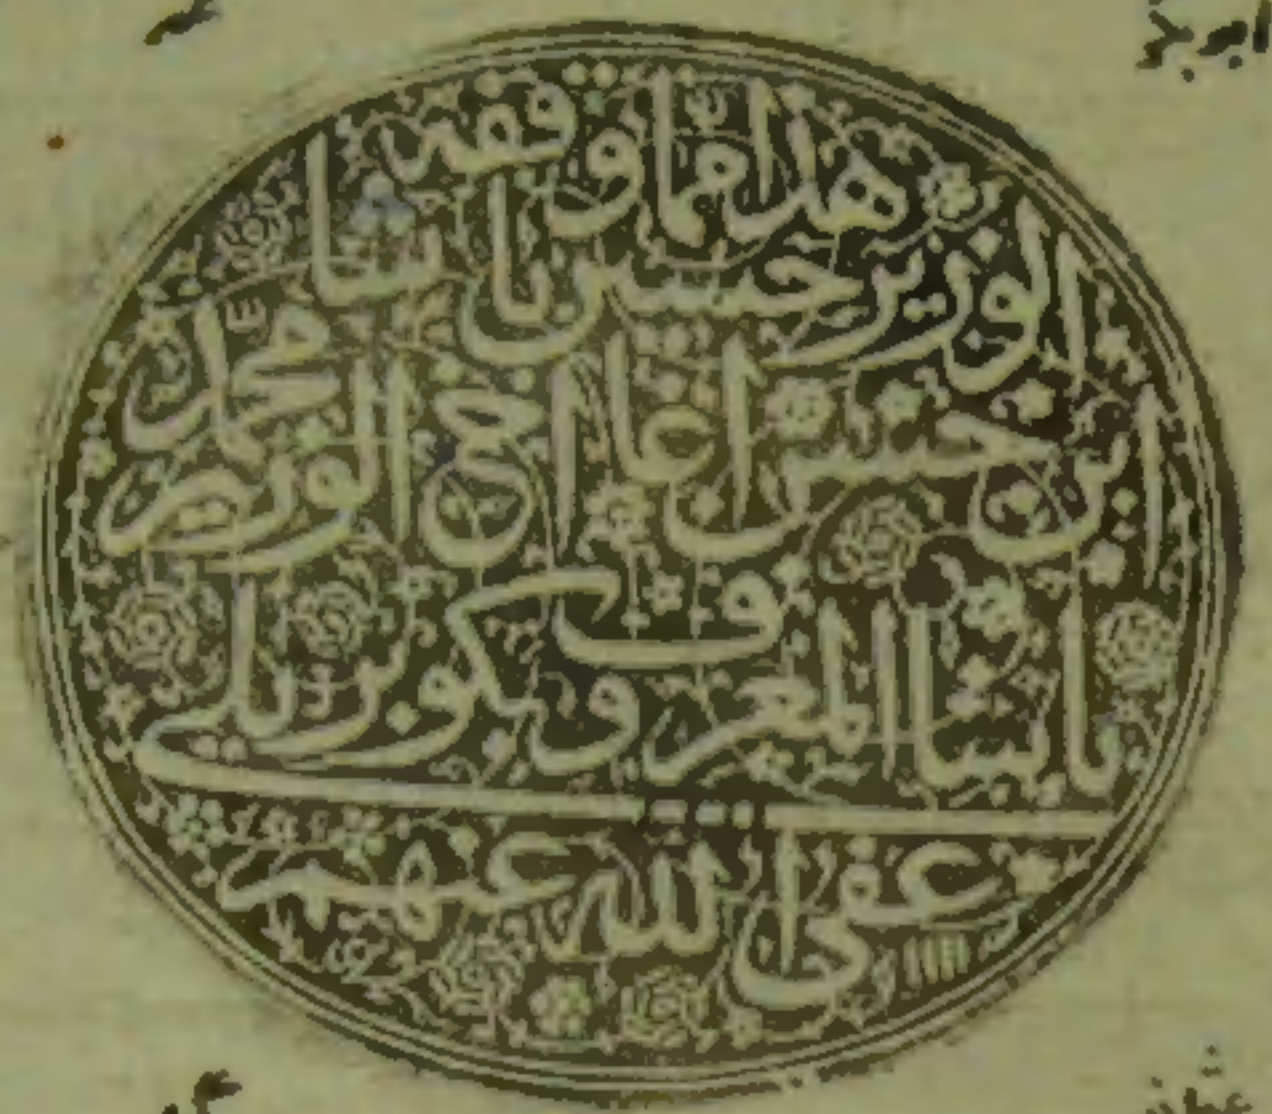 هذا مما وقفه
الوزير حسين پاشا
ابن حسن اغا اخى الوزير محمد
پاشا المعروف بكوپريلى
عفى الله عنهم
١١١١